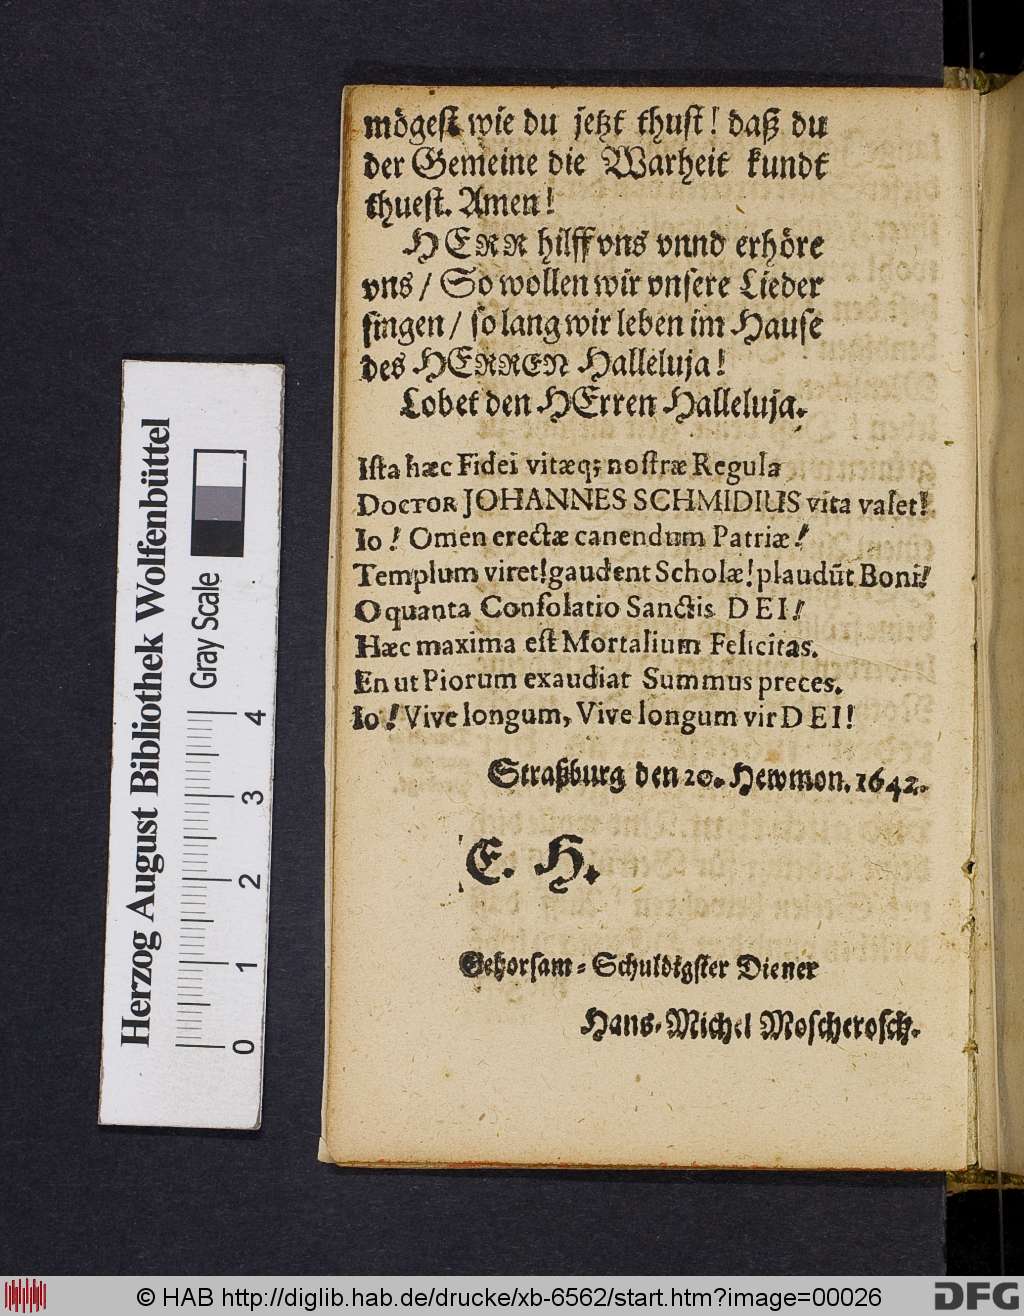 mögest wie du jetzt thust! daß du
der Gemeine die Warheit kundt
thuest. Amen!
HERR hilff vns vnnd erhöre
vns / So wollen wir vnsere Lieder
singen / so lang wir leben im Hause
des HERREN Halleluja!
Lobet den HErren Halleluja.
Ista hæc Fidei vitæq; nostræ Regula
DOCTOR JOHANNES SCHMIDIUS vita valet!
Io! Omen erectæ canendum Patriæ!
Templum viret! gaudent Scholæ! plaudūt Boni!
O quanta Consolatio Sanctis DEI!
Hæc maxima est Mortalium Felicitas.
En ut Piorum exaudiat Summus preces.
Io! Vive longum, Vive longum vir DEI!
Straßburg den 20. Hewmon. 1642.
E. H.
Gehorsam-Schuldigster Diener
Hans-Michel Moscherosch.
Herzog August Bibliothek Wolfenbüttel
Gray Scale
0 1 2 3 4
© HAB http://diglib.hab.de/drucke/xb-6562/start.htm?image=00026
DFG